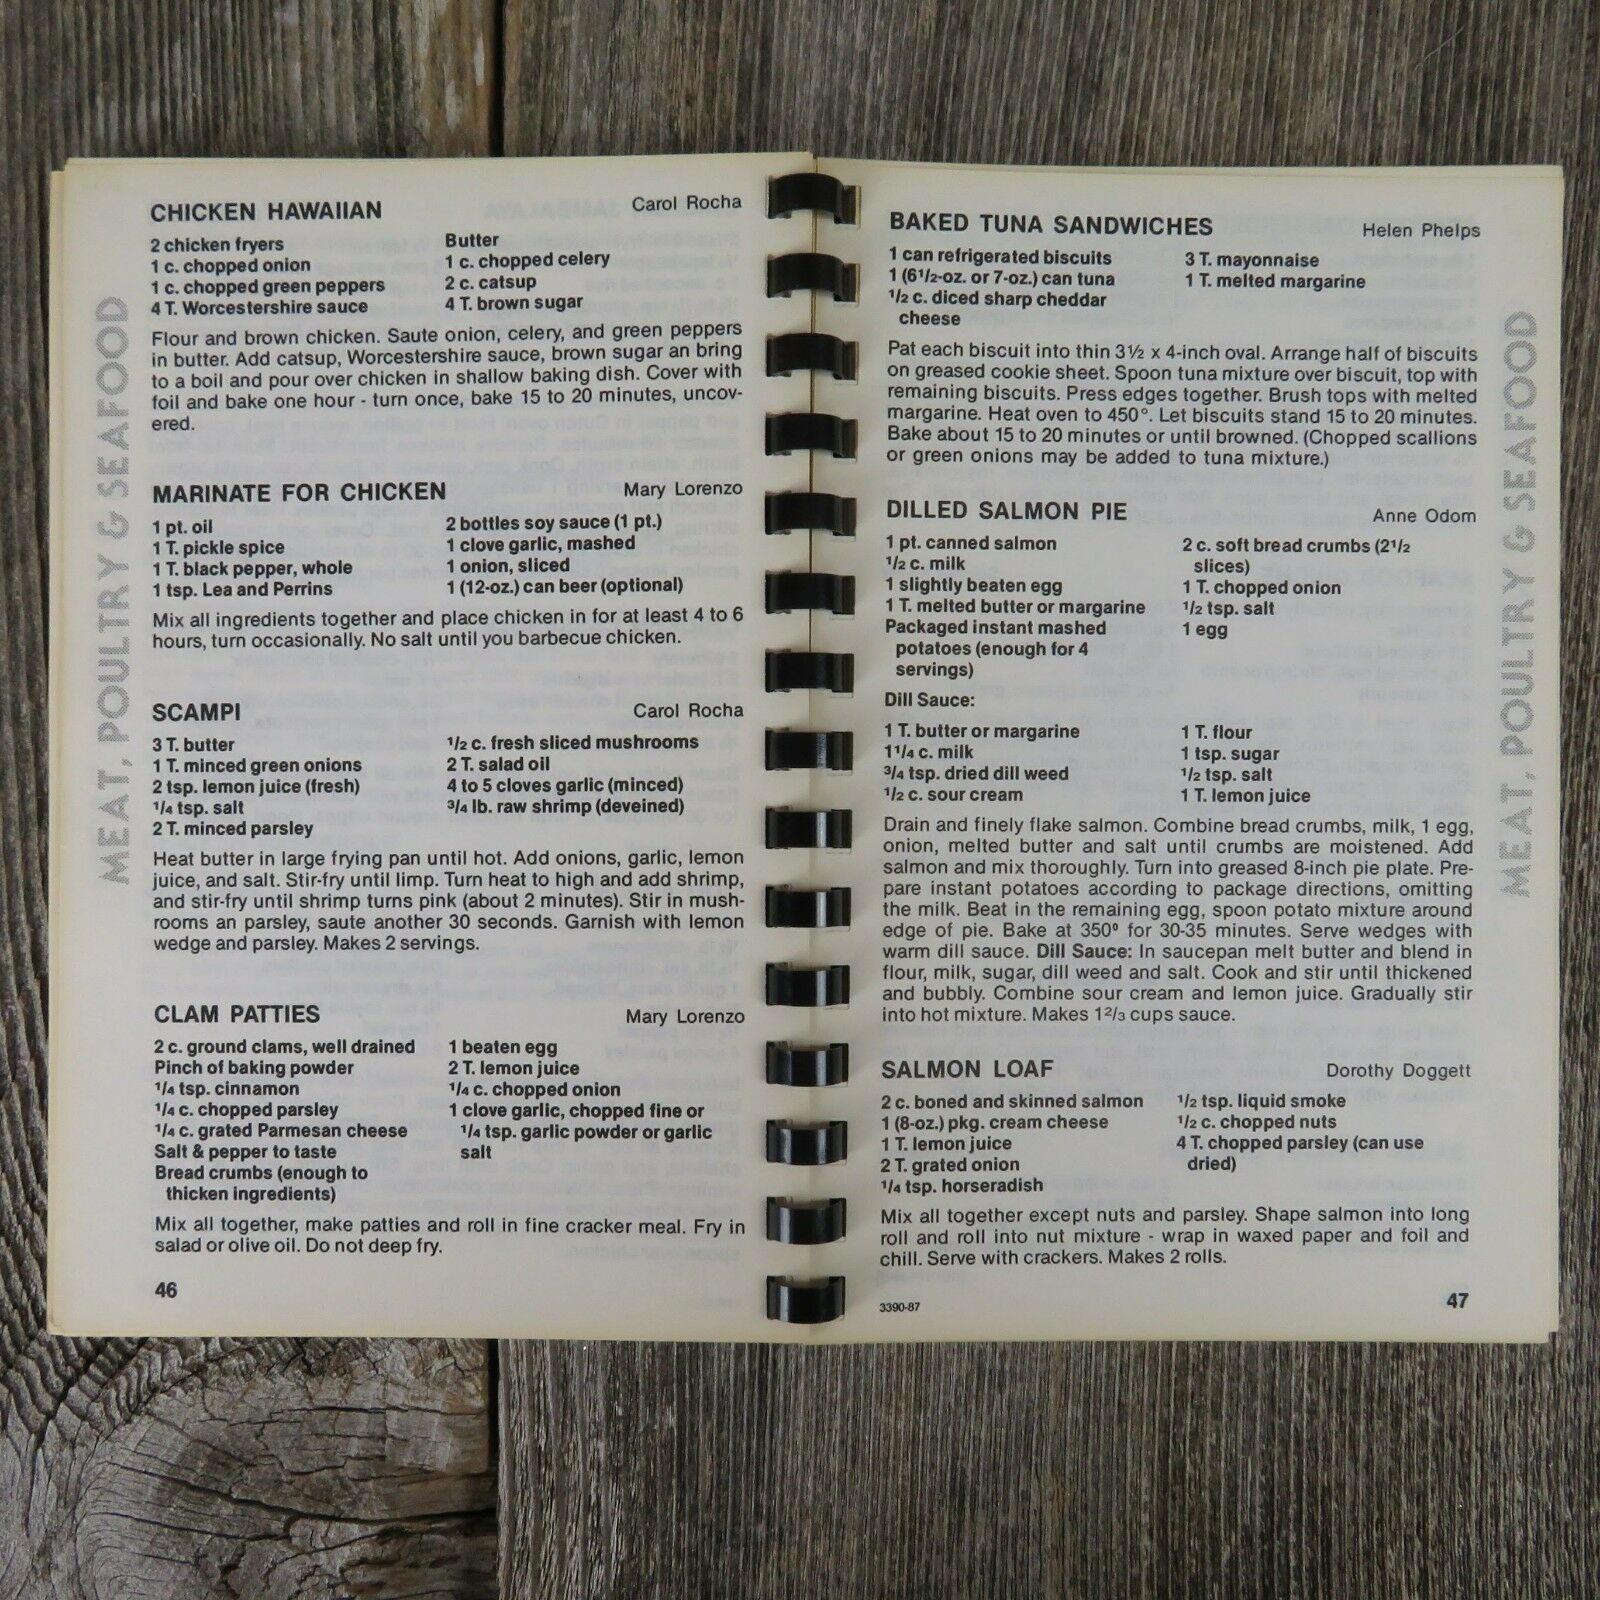 MEAT, POULTRY & SEAFOOD
CHICKEN HAWAIIAN Carol Rocha
2 chicken fryers Butter
1 c. chopped onion 1 c. chopped celery
1 c. chopped green peppers 2 c. catsup
4 T. Worcestershire sauce 4 T. brown sugar
Flour and brown chicken. Saute onion, celery, and green peppers
in butter. Add catsup, Worcestershire sauce, brown sugar an bring
to a boil and pour over chicken in shallow baking dish. Cover with
foil and bake one hour - turn once, bake 15 to 20 minutes, uncov-
ered.
MARINATE FOR CHICKEN Mary Lorenzo
1 pt. oil 2 bottles soy sauce (1 pt.)
1 T. pickle spice 1 clove garlic, mashed
1 T. black pepper, whole 1 onion, sliced
1 tsp. Lea and Perrins 1 (12-oz.) can beer (optional)
Mix all ingredients together and place chicken in for at least 4 to 6
hours, turn occasionally. No salt until you barbecue chicken.
SCAMPI Carol Rocha
3 T. butter 1/2 c. fresh sliced mushrooms
1 T. minced green onions 2 T. salad oil
2 tsp. lemon juice (fresh) 4 to 5 cloves garlic (minced)
1/4 tsp. salt 3/4 lb. raw shrimp (deveined)
2 T. minced parsley
Heat butter in large frying pan until hot. Add onions, garlic, lemon
juice, and salt. Stir-fry until limp. Turn heat to high and add shrimp,
and stir-fry until shrimp turns pink (about 2 minutes). Stir in mush-
rooms an parsley, saute another 30 seconds. Garnish with lemon
wedge and parsley. Makes 2 servings.
CLAM PATTIES Mary Lorenzo
2 c. ground clams, well drained 1 beaten egg
Pinch of baking powder 2 T. lemon juice
1/4 tsp. cinnamon 1/4 c. chopped onion
1/4 c. chopped parsley 1 clove garlic, chopped fine or
1/4 c. grated Parmesan cheese 1/4 tsp. garlic powder or garlic
Salt & pepper to taste salt
Bread crumbs (enough to
thicken ingredients)
Mix all together, make patties and roll in fine cracker meal. Fry in
salad or olive oil. Do not deep fry.
46
BAKED TUNA SANDWICHES Helen Phelps
1 can refrigerated biscuits 3 T. mayonnaise
1 (61/2-oz. or 7-oz.) can tuna 1 T. melted margarine
1/2 c. diced sharp cheddar
cheese
Pat each biscuit into thin 3½ x 4-inch oval. Arrange half of biscuits
on greased cookie sheet. Spoon tuna mixture over biscuit, top with
remaining biscuits. Press edges together. Brush tops with melted
margarine. Heat oven to 450°. Let biscuits stand 15 to 20 minutes.
Bake about 15 to 20 minutes or until browned. (Chopped scallions
or green onions may be added to tuna mixture.)
DILLED SALMON PIE Anne Odom
1 pt. canned salmon 2 c. soft bread crumbs (21/2
1/2 c. milk slices)
1 slightly beaten egg 1 T. chopped onion
1 T. melted butter or margarine 1/2 tsp. salt
Packaged instant mashed 1 egg
potatoes (enough for 4
servings)
Dill Sauce:
1 T. butter or margarine 1 T. flour
11/4 c. milk 1 tsp. sugar
3/4 tsp. dried dill weed 1/2 tsp. salt
1/2 c. sour cream 1 T. lemon juice
Drain and finely flake salmon. Combine bread crumbs, milk, 1 egg,
onion, melted butter and salt until crumbs are moistened. Add
salmon and mix thoroughly. Turn into greased 8-inch pie plate. Pre-
pare instant potatoes according to package directions, omitting
the milk. Beat in the remaining egg, spoon potato mixture around
edge of pie. Bake at 350° for 30-35 minutes. Serve wedges with
warm dill sauce. Dill Sauce: In saucepan melt butter and blend in
flour, milk, sugar, dill weed and salt. Cook and stir until thickened
and bubbly. Combine sour cream and lemon juice. Gradually stir
into hot mixture. Makes 12/3 cups sauce.
SALMON LOAF Dorothy Doggett
2 c. boned and skinned salmon 1/2 tsp. liquid smoke
1 (8-oz.) pkg. cream cheese 1/2 c. chopped nuts
1 T. lemon juice 4 T. chopped parsley (can use
2 T. grated onion dried)
1/4 tsp. horseradish
Mix all together except nuts and parsley. Shape salmon into long
roll and roll into nut mixture - wrap in waxed paper and foil and
chill. Serve with crackers. Makes 2 rolls.
3390-87 47
MEAT, POULTRY & SEAFOOD